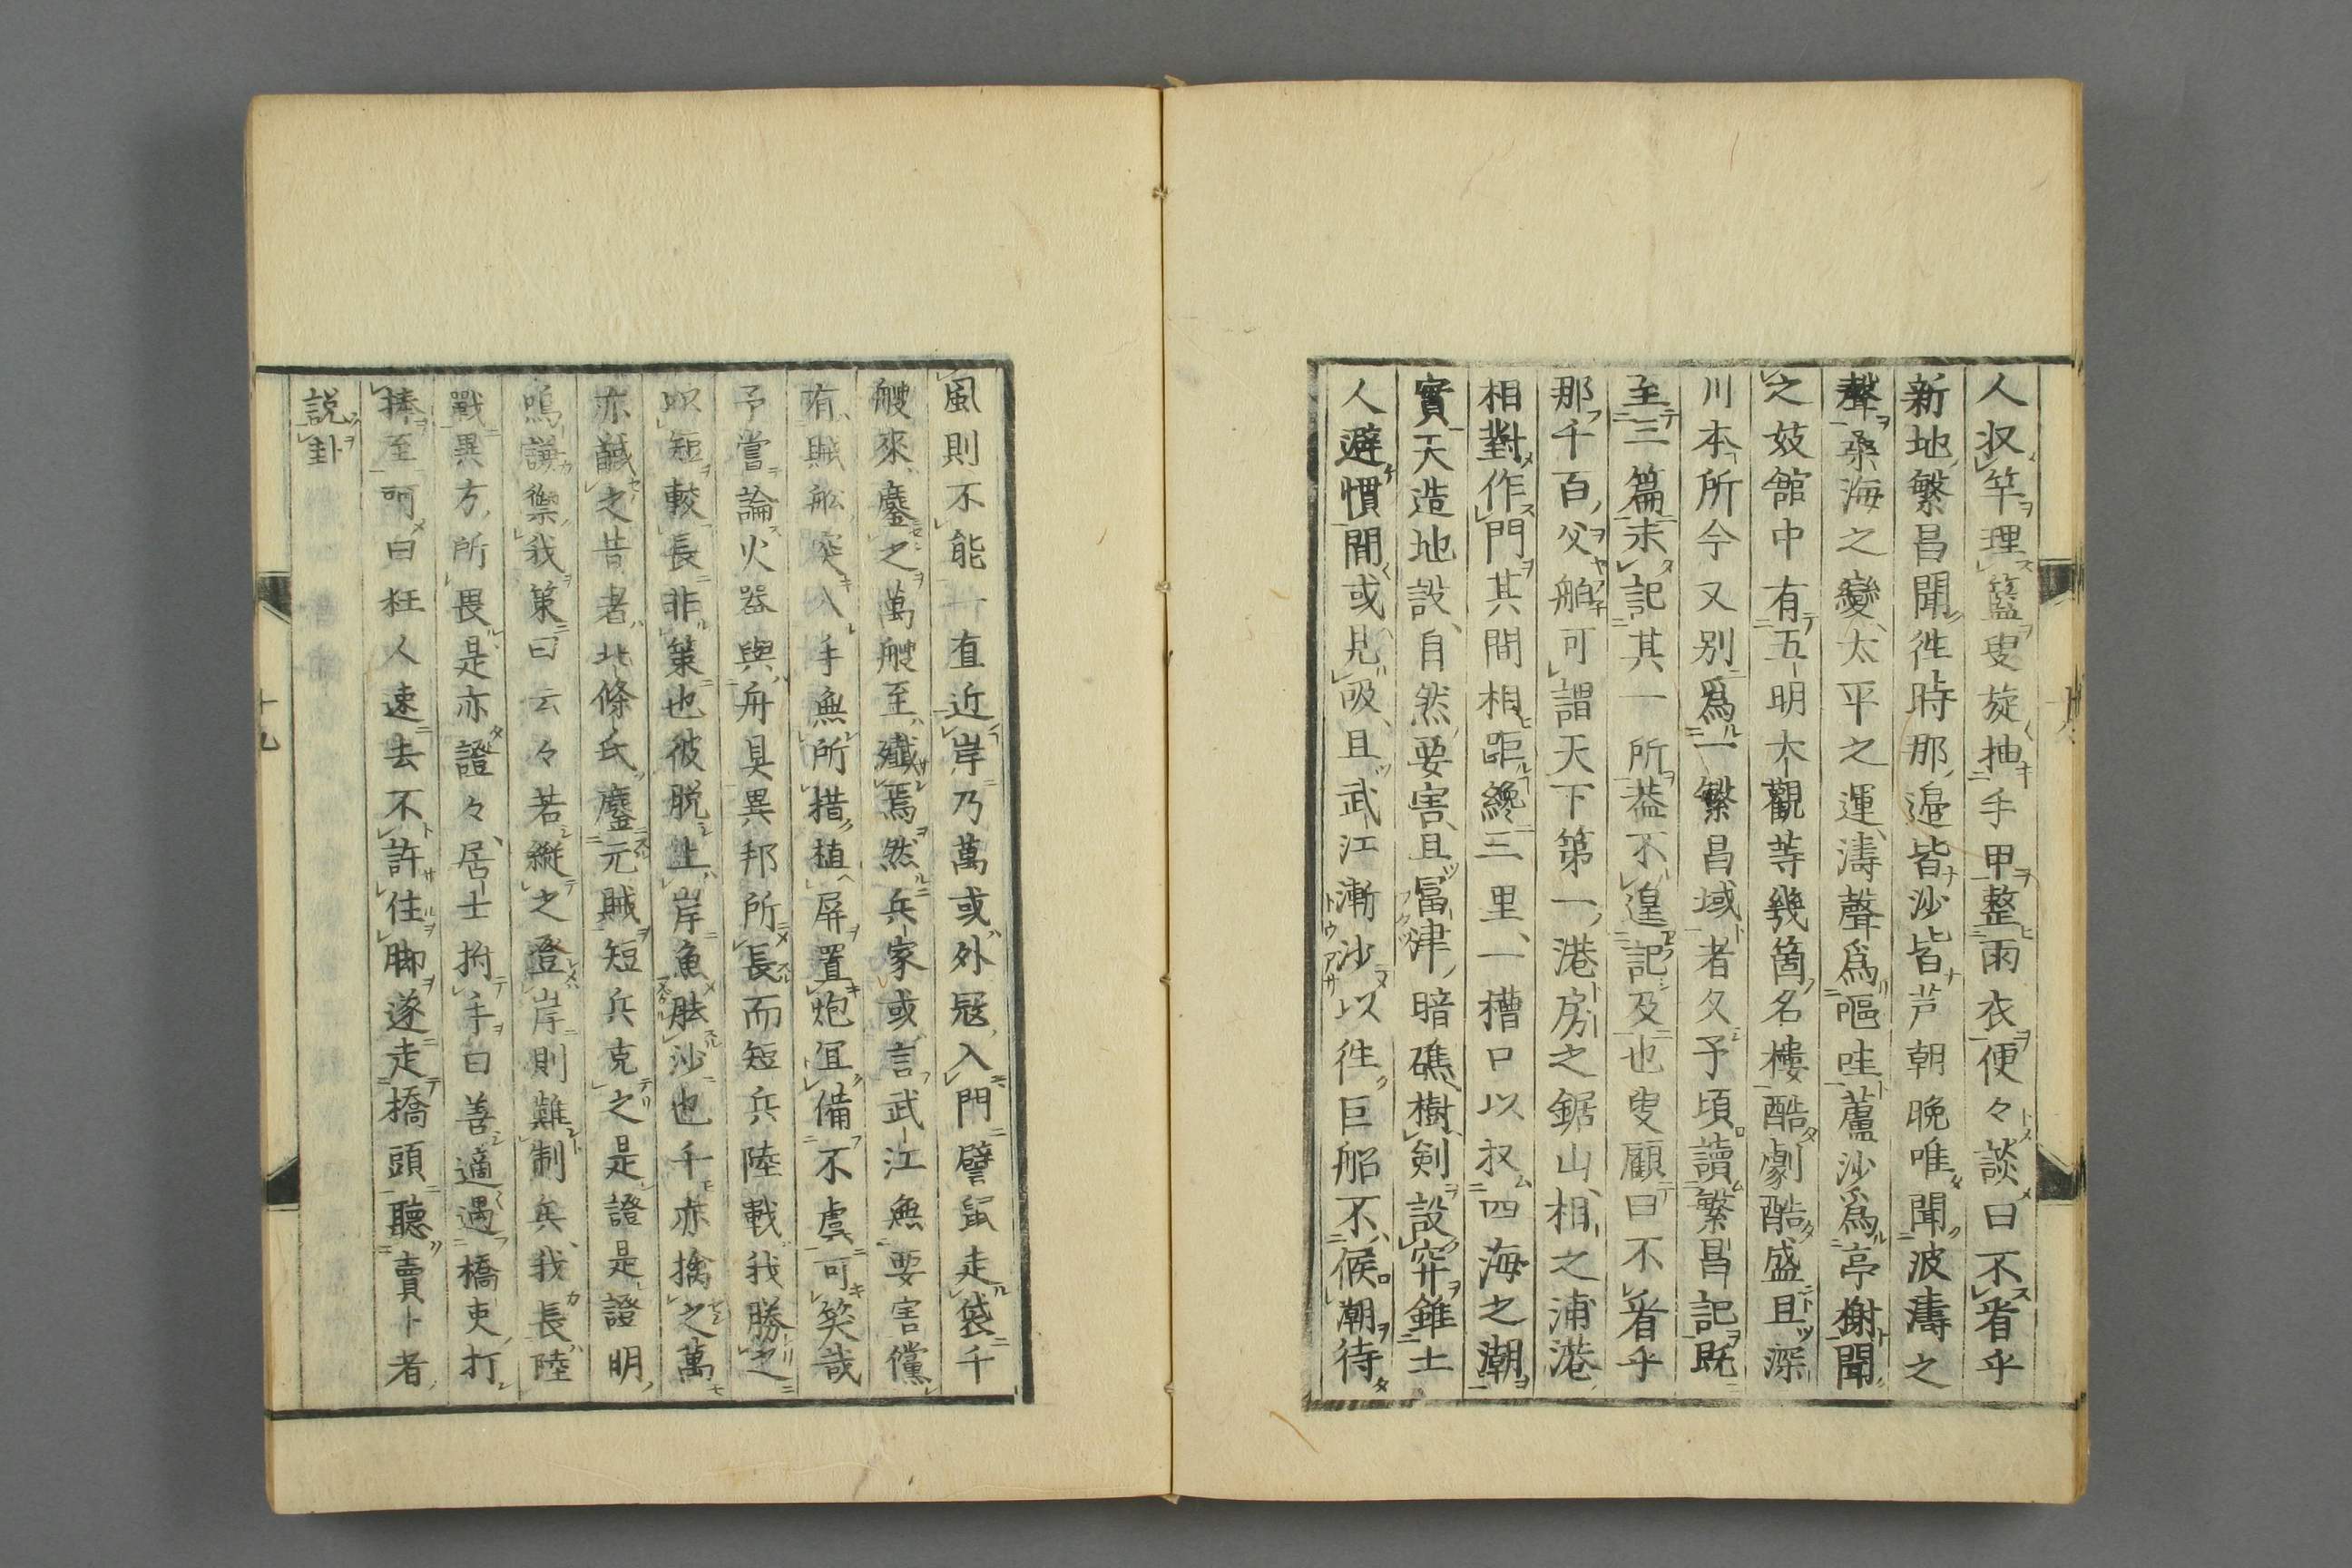 人収竿理籃叟旋抽手甲整雨衣便々談曰不看乎
新地繁昌聞徃時那邉皆沙皆芦朝晩唯聞波濤之
聲桑海之變太平之運濤聲爲嘔哇蘆沙爲亭榭聞
之妓館中有五明大觀等幾箇名樓酷劇酷盛且深
川本所今又別爲一繁昌域者久予頃讀繁昌記既
至三篇未記其一所葢不遑記及也叟顧曰不看乎
那千百父舶可謂天下第一港房之鋸山相之浦港
相對作門其間相距纔三里一糟口以収四海之潮
實天造地設自然要害且冨津暗礁樹剣設穽錐土
人避慣間或見吸且武江漸沙以徃巨船不候潮待
風則不能一直近岸乃萬或外冦入門譬鼠走袋千
艘來鏖之萬艘至殲焉然兵家或言武江無要害儻
有賊舩突入手無所措植屏置炮宜備不虞可笑哉
予嘗論火器與舟具異邦所長而短兵陸戰我勝之
以短較長非策也彼脱上岸魚胠沙也千亦擒之萬
亦馘之昔者北條氏鏖元賊短兵克之是證是證明
嗚謙禦我策曰云々若縱之登岸則難制兵我長陸
戰異方所畏是亦證々居士拊手曰善適遇橋吏打
捧至呵曰狂人速去不許住脚遂走橋頭聽賣卜者
説卦
十九